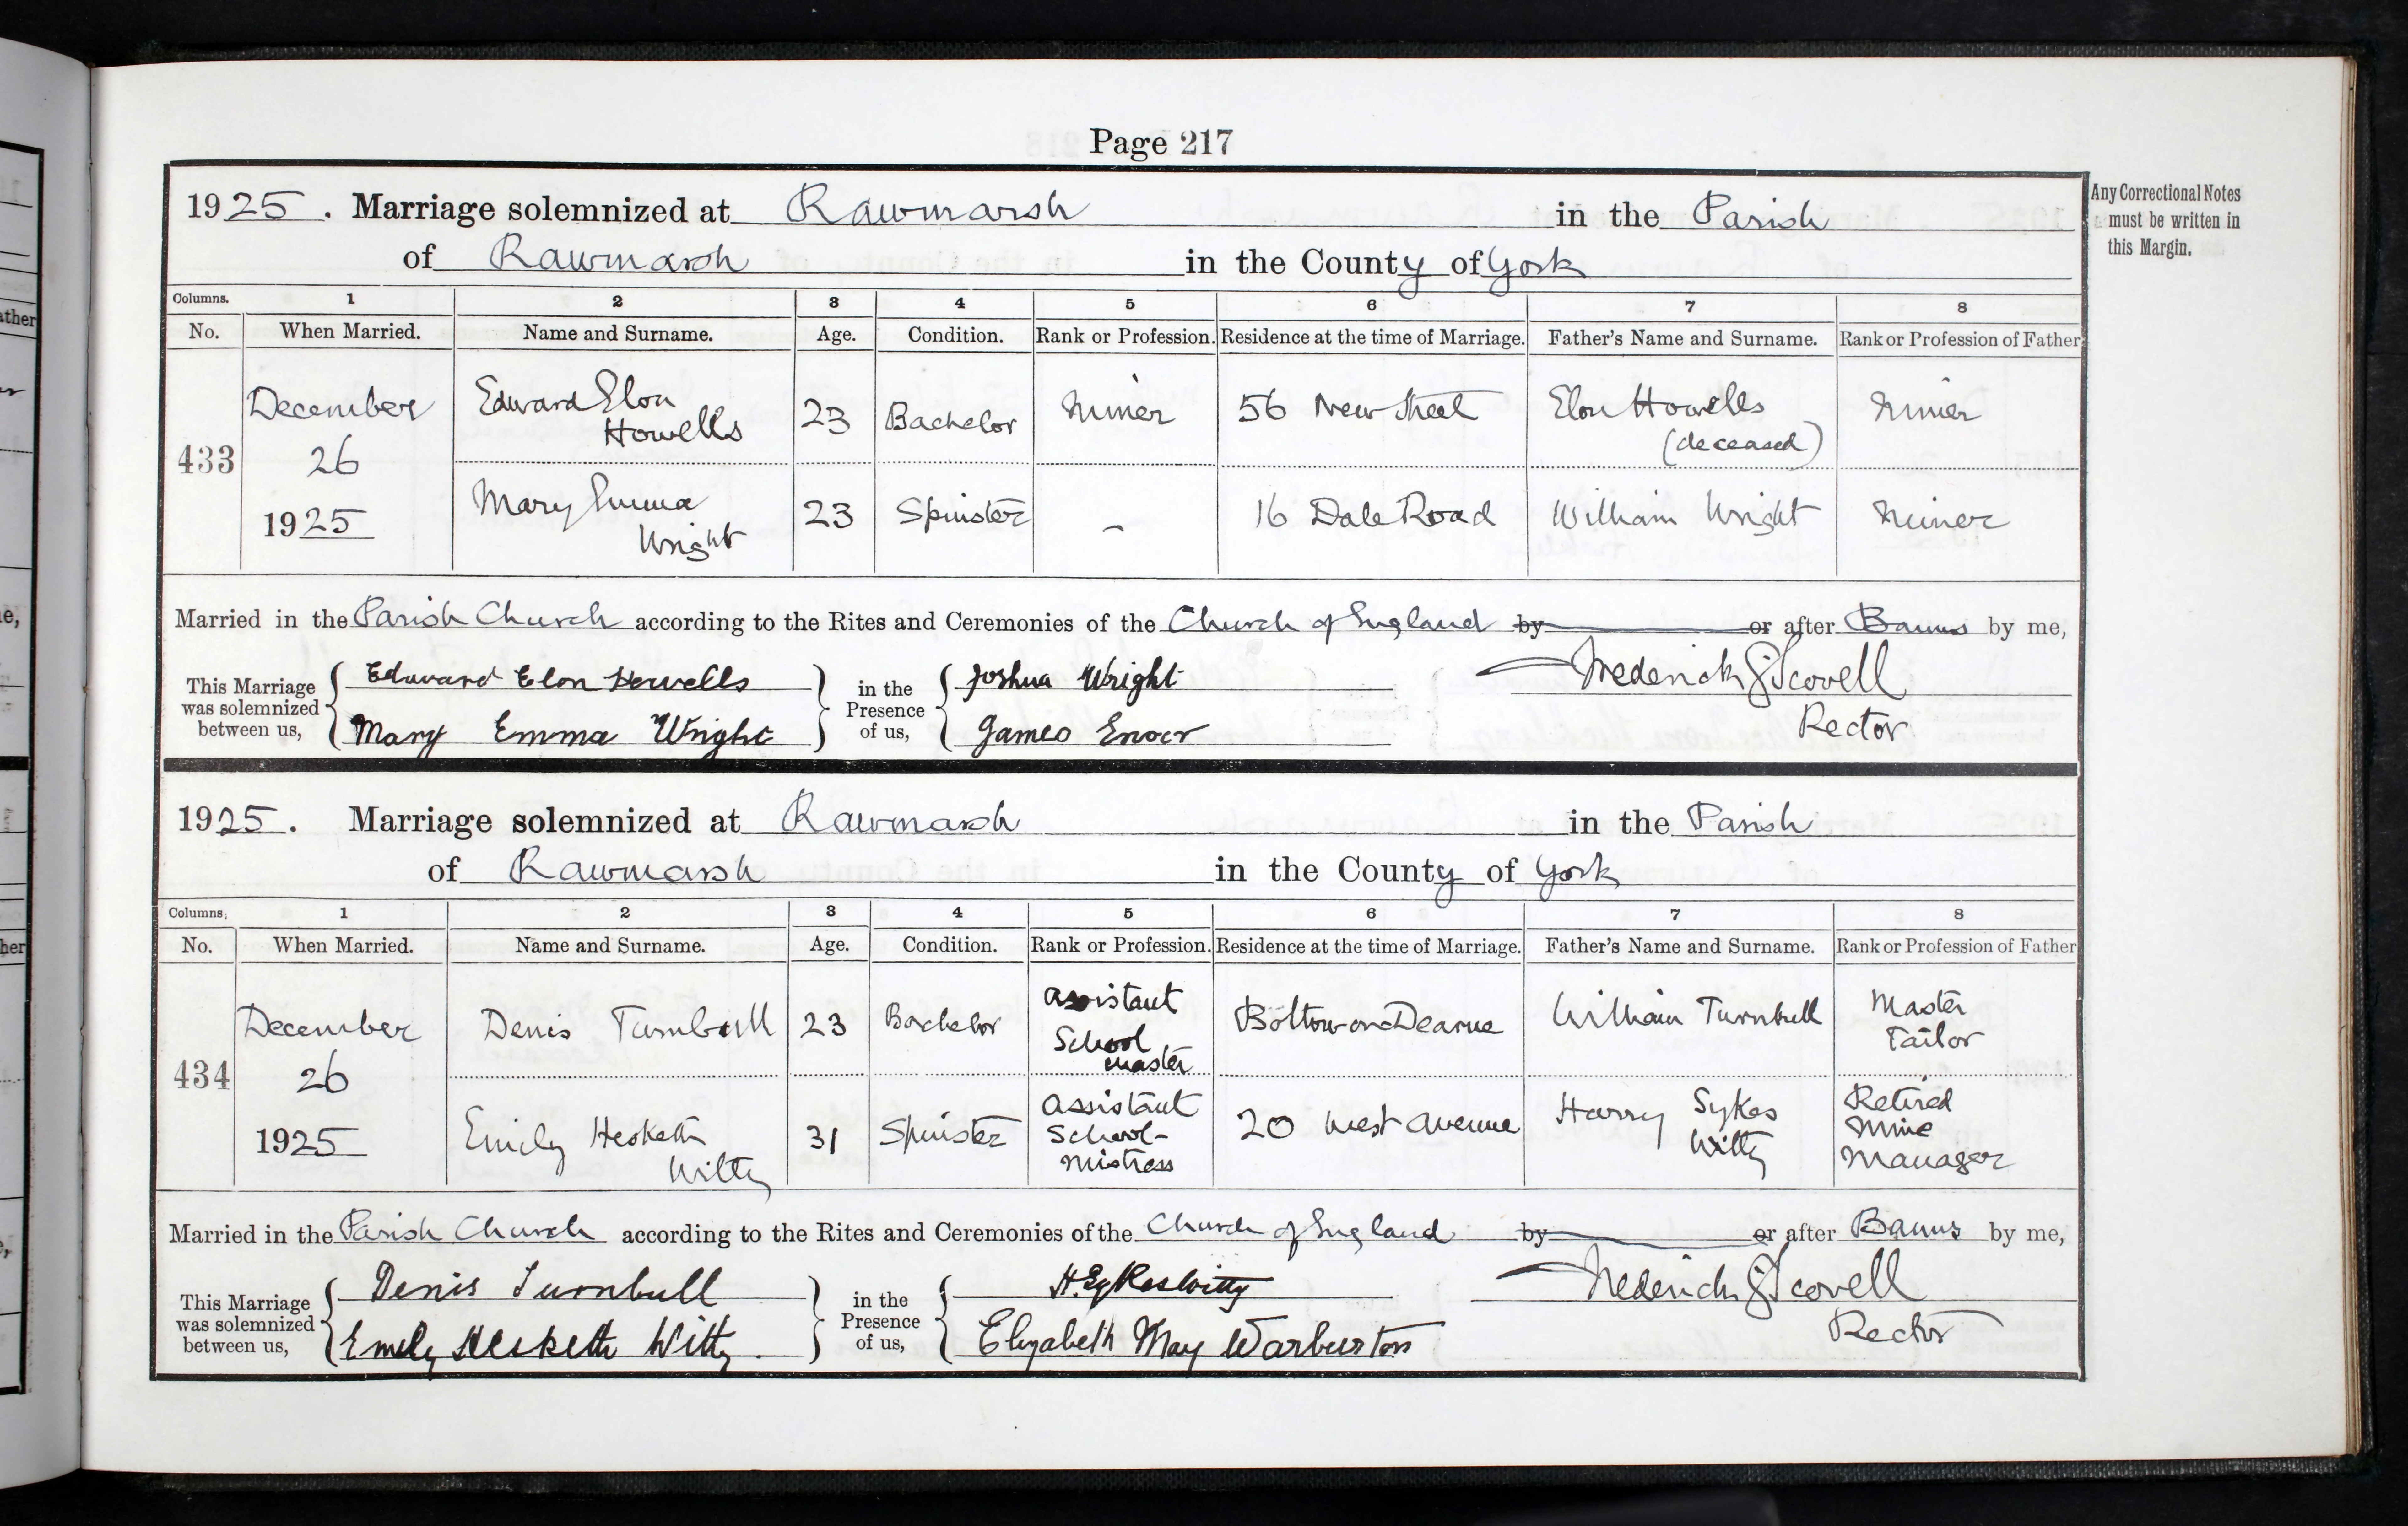 Page 217
Any Correctional Notes
must be written in
this Margin.
1925. Marriage solemnized at Rawmarsh in the Parish
of Rawmarsh in the County of York
Columns. 1 2 3 4 5 6 7 8
No. When Married. Name and Surname. Age. Condition. Rank or Profession. Residence at the time of Marriage. Father's Name and Surname. Rank or Profession of Father
433 December 26 1925
Edward Elon Howells 23 Bachelor Miner 56 New Street Elon Howells (deceased) Miner
Mary Emma Wright 23 Spinster - 16 Dale Road William Wright Miner
Married in the Parish Church according to the Rites and Ceremonies of the Church of England by or after Banns by me,
This Marriage was solemnized between us, Edward Elon Howells in the Presence of us, Joshua Wright Frederick G Scovell
Mary Emma Wright James Rector
1925. Marriage solemnized at Rawmarsh in the Parish
of Rawmarsh in the County of York
Columns, 1 2 3 4 5 6 7 8
No. When Married. Name and Surname. Age. Condition. Rank or Profession. Residence at the time of Marriage. Father's Name and Surname. Rank or Profession of Father
434 December 26 1925
Denis Turnbull 23 Bachelor Assistant School master Bolton-on-Dearne William Turnbull Master Tailor
Emily Hesketh Witty 31 Spinster Assistant School-mistress 20 West Avenue Harry Sykes Witty Retired Mine Manager
Married in the Parish Church according to the Rites and Ceremonies of the Church of England by or after Banns by me,
This Marriage was solemnized between us, Denis Turnbull in the Presence of us, H. Sykes Witty Frederick G Scovell
Emily Hesketh Witty. Elizabeth May Warburton Rector